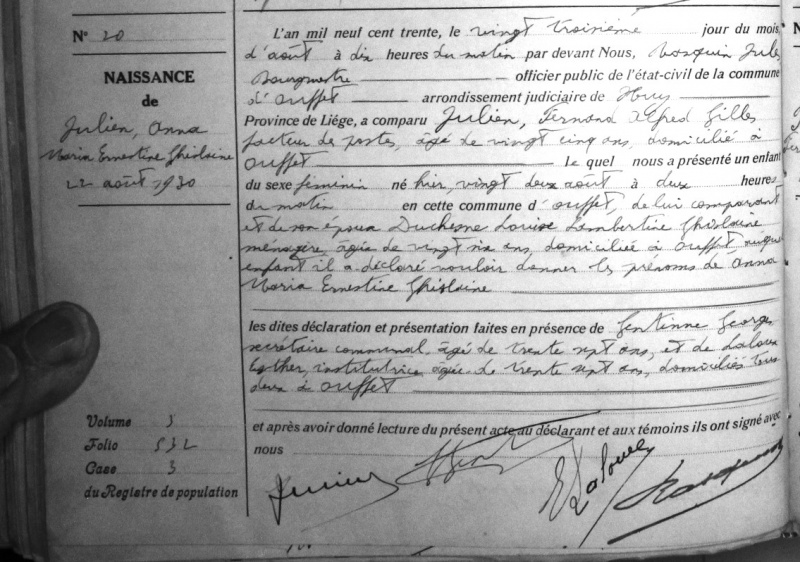 N° 20
NAISSANCE
de
Julien, Anna
Maria Ernestine Ghislaine
22 août 1930
Volume 3
Folio 532
Case 3
du Registre de population
L'an mil neuf cent trente, le vingt troisième jour du mois
d'août à dix heures du matin par devant Nous, Mosquin Jules
Bourgmestre officier public de l'état-civil de la commune
d'Ouffet arrondissement judiciaire de Huy
Province de Liége, a comparu Julien, Fernand Alfred Gilles
facteur de postes, âgé de vingt cinq ans, domicilié à
Ouffet Le quel nous a présenté un enfant
du sexe féminin né hier, vingt deux août à deux heures
du matin en cette commune d'Ouffet, de lui comparant
et de son épouse Duchesne Louise Lambertine Ghislaine
ménagère âgée de vingt six ans domiciliée à Ouffet auquel
enfant il a déclaré vouloir donner les prénoms de Anna
Maria Ernestine Ghislaine
les dites déclaration et présentation faites en présence de Gentinne Georges
secrétaire communal, âgé de trente sept ans, et de Laloux
Esther, institutrice, âgée de trente sept ans, domiciliés tous
deux à Ouffet
et après avoir donné lecture du présent acte au déclarant et aux témoins ils ont signé avec
nous
Julien
E Laloux